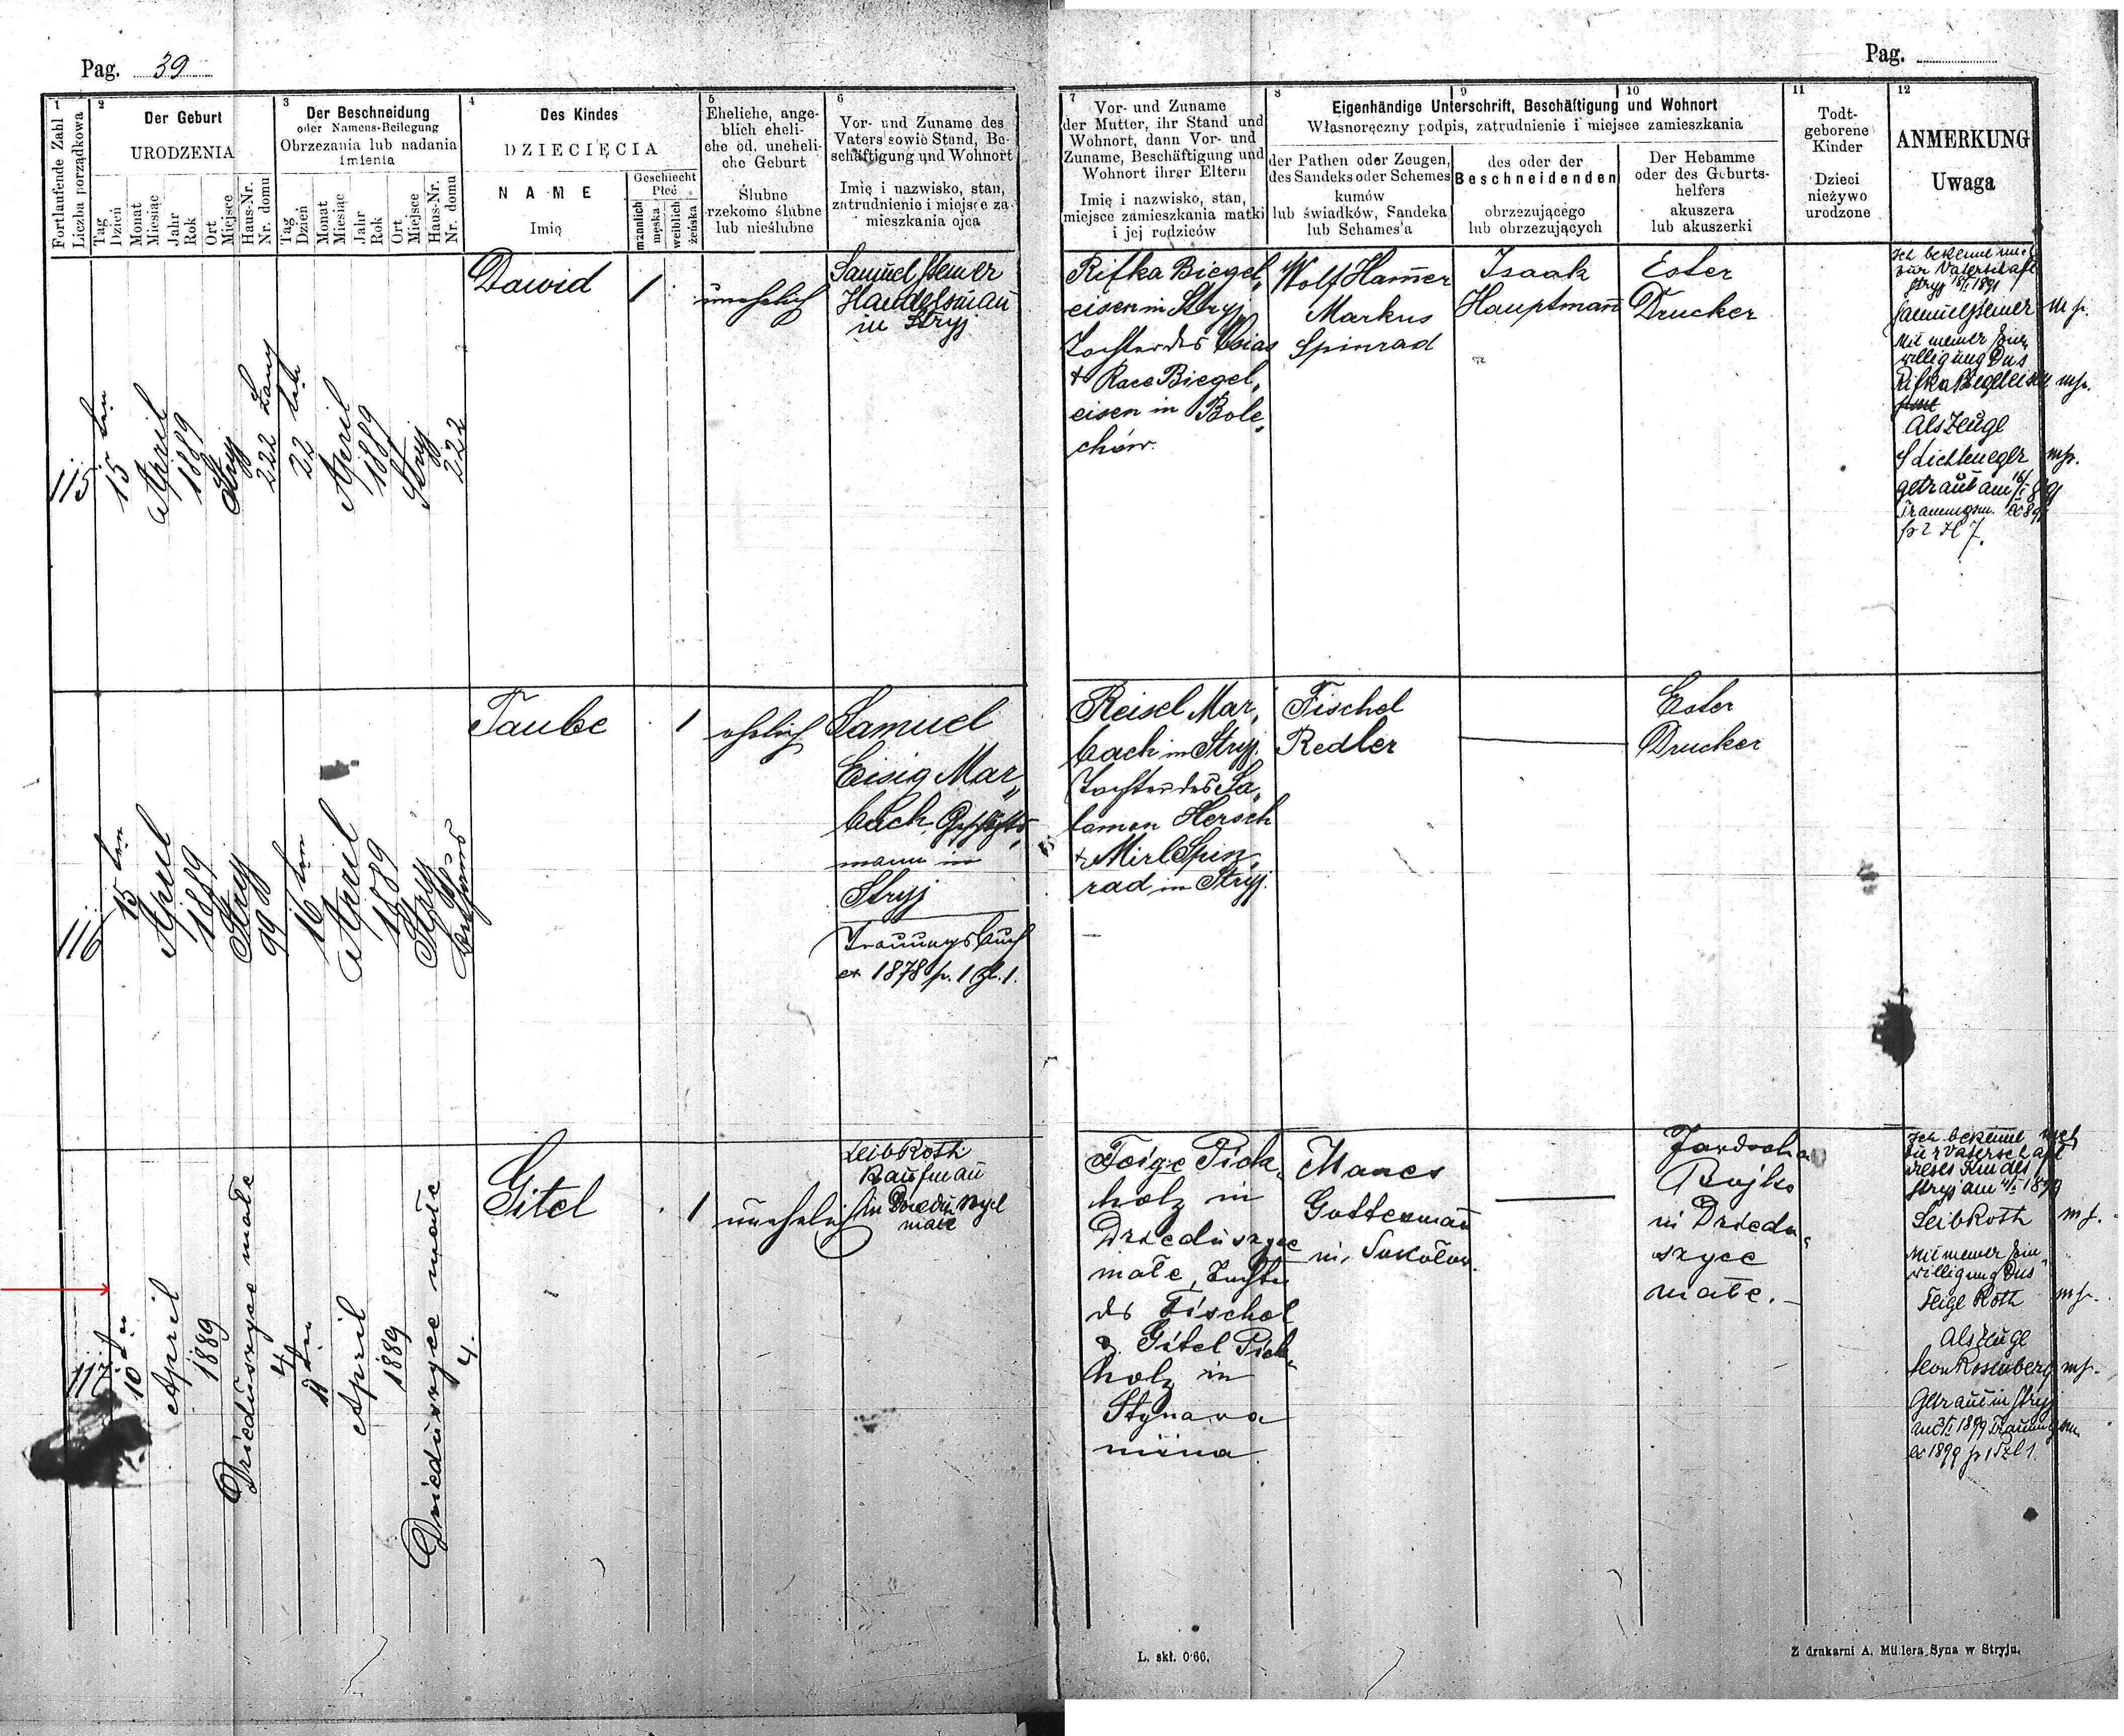 Pag. 39
Pag.
1
Fortlaufende Zahl
Liczba porządkowa
2
Der Geburt
URODZENIA
Tag
Dzień
Monat
Miesiąc
Jahr
Rok
Ort
Miejsce
Haus-Nr.
Nr. domu
3
Der Beschneidung
oder Namens-Beilegung
Obrzezania lub nadania
imienia
Tag
Dzień
Monat
Miesiąc
Jahr
Rok
Ort
Miejsce
Haus-Nr.
Nr. domu
4
Des Kindes
DZIECIĘCIA
NAME
Imię
Geschlecht
Płeć
männlich
męska
weiblich
żeńska
5
Eheliche, ange-
blich eheli-
che od. uneheli-
che Geburt
Ślubne
rzekomo ślubne
lub nieślubne
6
Vor- und Zuname des
Vaters sowie Stand, Be-
schäftigung und Wohnort
Imię i nazwisko, stan,
zatrudnienie i miejsce za-
mieszkania ojca
7
Vor- und Zuname
der Mutter, ihr Stand und
Wohnort, dann Vor- und
Zuname, Beschäftigung und
Wohnort ihrer Eltern
Imię i nazwisko, stan,
miejsce zamieszkania matki
i jej rodziców
8
9
10
Eigenhändige Unterschrift, Beschäftigung und Wohnort
Własnoręczny podpis, zatrudnienie i miejsce zamieszkania
der Pathen oder Zeugen,
des Sandeks oder Schemes
kumów
lub świadków, Sandeka
lub Schames'a
des oder der
Beschneidenden
obrzezującego
lub obrzezujących
Der Hebamme
oder des Geburts-
helfers
akuszera
lub akuszerki
11
Todt-
geborene
Kinder
Dzieci
nieżywo
urodzone
12
ANMERKUNG
Uwaga
115
15 ten
April
1889
Stryj
222
22 ten
April
1889
Stryj
222
Dawid
1
unehelich
Samuel
Handelsmañ
in Stryj
Rifka Biegel„
eisen in Stryj
Tochter des
+ Race Biegel„
eisen in Bole„
chów.
Wolf Ham̃er
Markus
Spinrad
Isaak
Hauptmañ
Ester
Drucker
Ich bekenne mich
zur Vaterschaft
Stryj 1891
Samuel m p.
Mit meiner Ein„
willigung Dus
Rifka Biegeleisen mp.
Als Zeuge
S Lichteneger mp.
getraut am
116
15 ten
April
1889
Stryj
99
16 ten
April
1889
Stryj
Taube
1
ehelich
Samuel
Eisig Mar„
bach Geschäfts„
mann in
Stryj
Trauungsbuch
ex 1878 p. 1 Zl. 1.
Reisel Mar„
bach in Stryj.
Tochter des Sa„
lamon Hersch
+ Mirl Spin„
rad in Stryj.
Fischel
Redler
Ester
Drucker
117
10 ten
April
1889
Dzieduszyce małe
4
11 ten
April
1889
Dzieduszyce małe
4.
Gitel
1
unehelich
Leib Roth
Kaufmañ
in Dzieduszyce
małe
Feige Pick„
holz in
Dzieduszyce
małe, Tochter
des Fischel
& Gitel Pick„
holz in
Stynawa
niżna
Manes
Gottesmañ
in Sokołow.
Bojko
in Dziedu„
szyce
małe.
Ich bekenne mich
zur Vaterschaft
dieses Kindes
Stryj am 1899
Leib Roth mp.
Mit meiner Ein„
willigung Dus
Feige Roth mp.
Als Zeuge
Leon Rosenberg mp.
Getraut in Stryj
L. skł. 0·66.
Z drukarni A. Müllera Syna w Stryju.